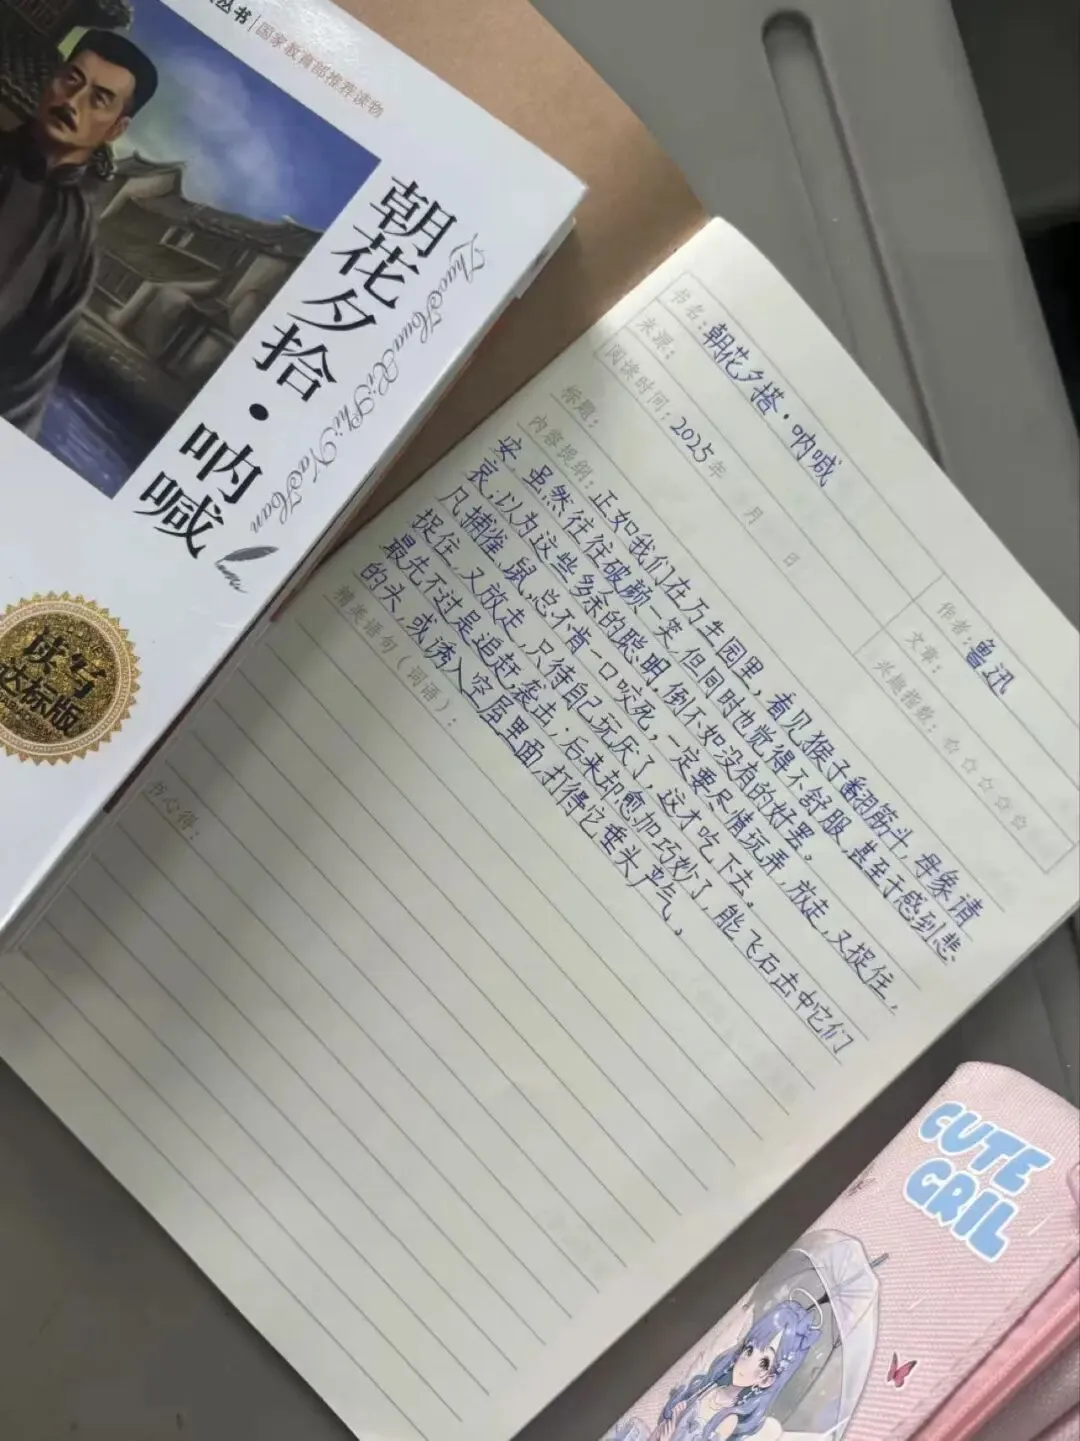 丛书|国家教育部推荐读物
朝花夕拾·呐喊
ZhaoHuaXiShiNaHan
读写
达标版
书名：朝花夕搭·呐喊
来源：
作者：鲁迅
阅读时间：2025年 月 日
文章：
标题：
兴趣指数：☆☆☆☆☆
内容提纲：正如我们在万生园里，看见猴子翻筋斗，母象请
安，虽然往往破颜一笑，但同时也觉得不舒服，甚至于感到悲
哀，以为这些多余的聪明，倒不如没有的好罢。
凡捕雀、鼠，总不肯一口咬死，一定要尽情玩弄，放走，又捉住，
捉住，又放走，只待自己玩厌了，这才吃下去。
最先不过是追赶，袭击；后来却愈加巧妙了，能飞石击中它们
的头，或诱入空屋里面，打得它垂头丧气。
精美语句（词语）：
书心得：
CUTE
GRIL